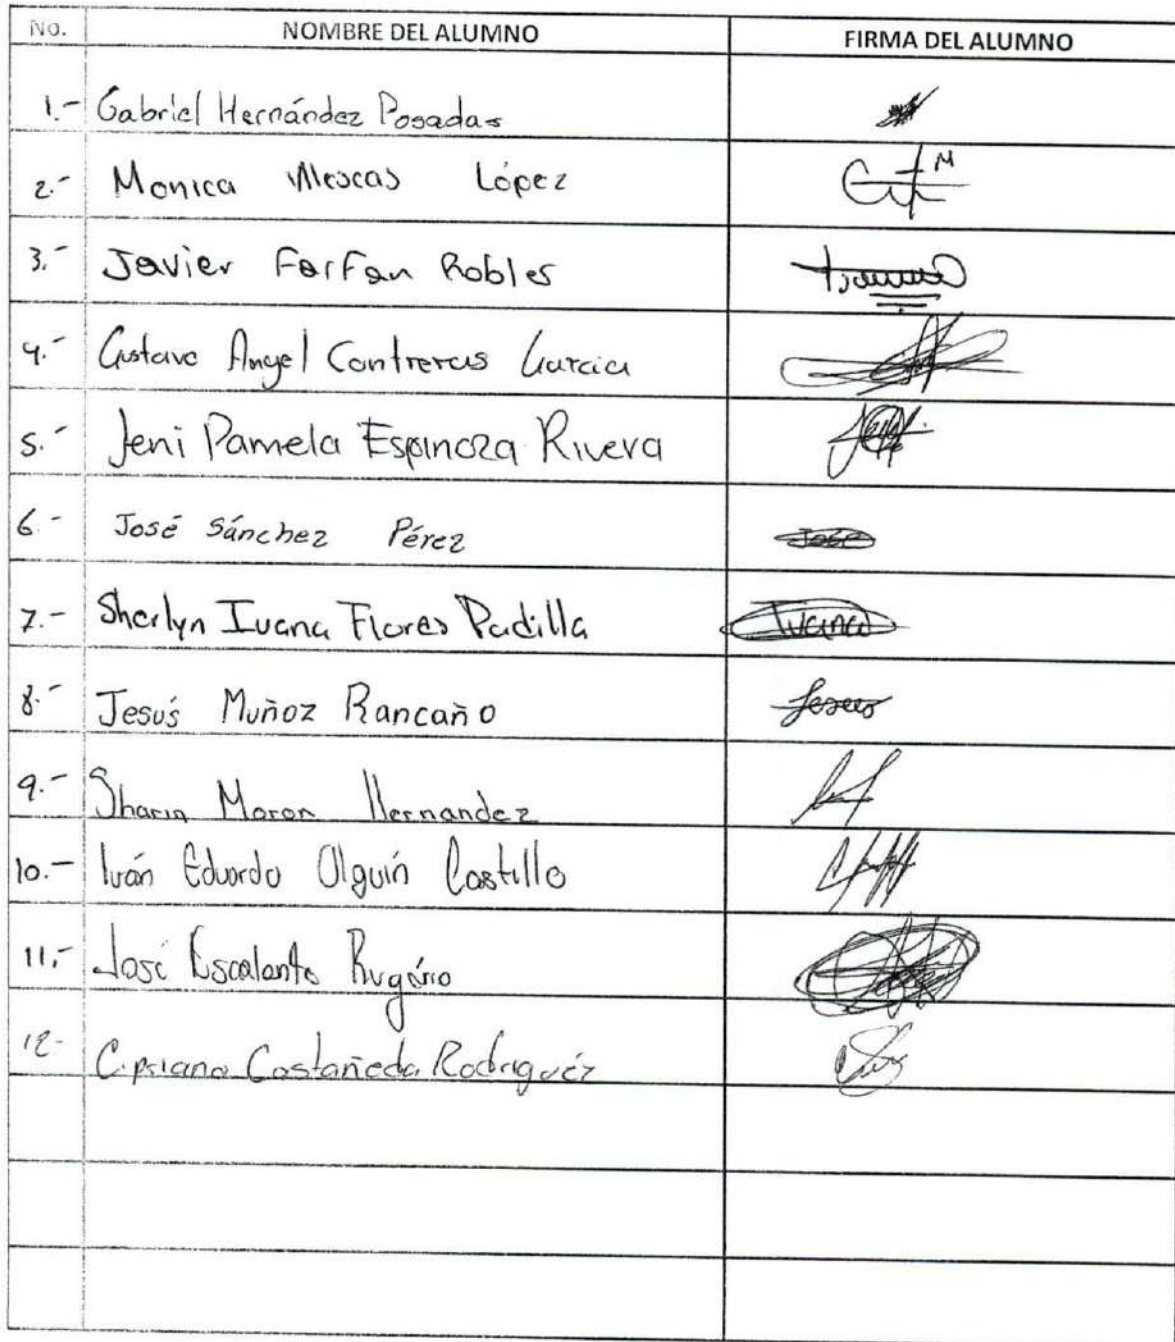 No. NOMBRE DEL ALUMNO FIRMA DEL ALUMNO
1.- Gabriel Hernández Posadas
2.- Monica Illescas López
3.- Javier Farfan Robles
4.- Gustavo Angel Contreras Garcia
5.- Jeni Pamela Espinoza Rivera
6.- José Sánchez Pérez José
7.- Sherlyn Ivana Flores Padilla Ivana
8.- Jesús Muñoz Rancaño Jesus
9.- Sharin Moron Hernandez
10.- Iván Eduardo Olguín Castillo
11.- José Escalante
12.- Cipriano Castañeda Rodriguéz